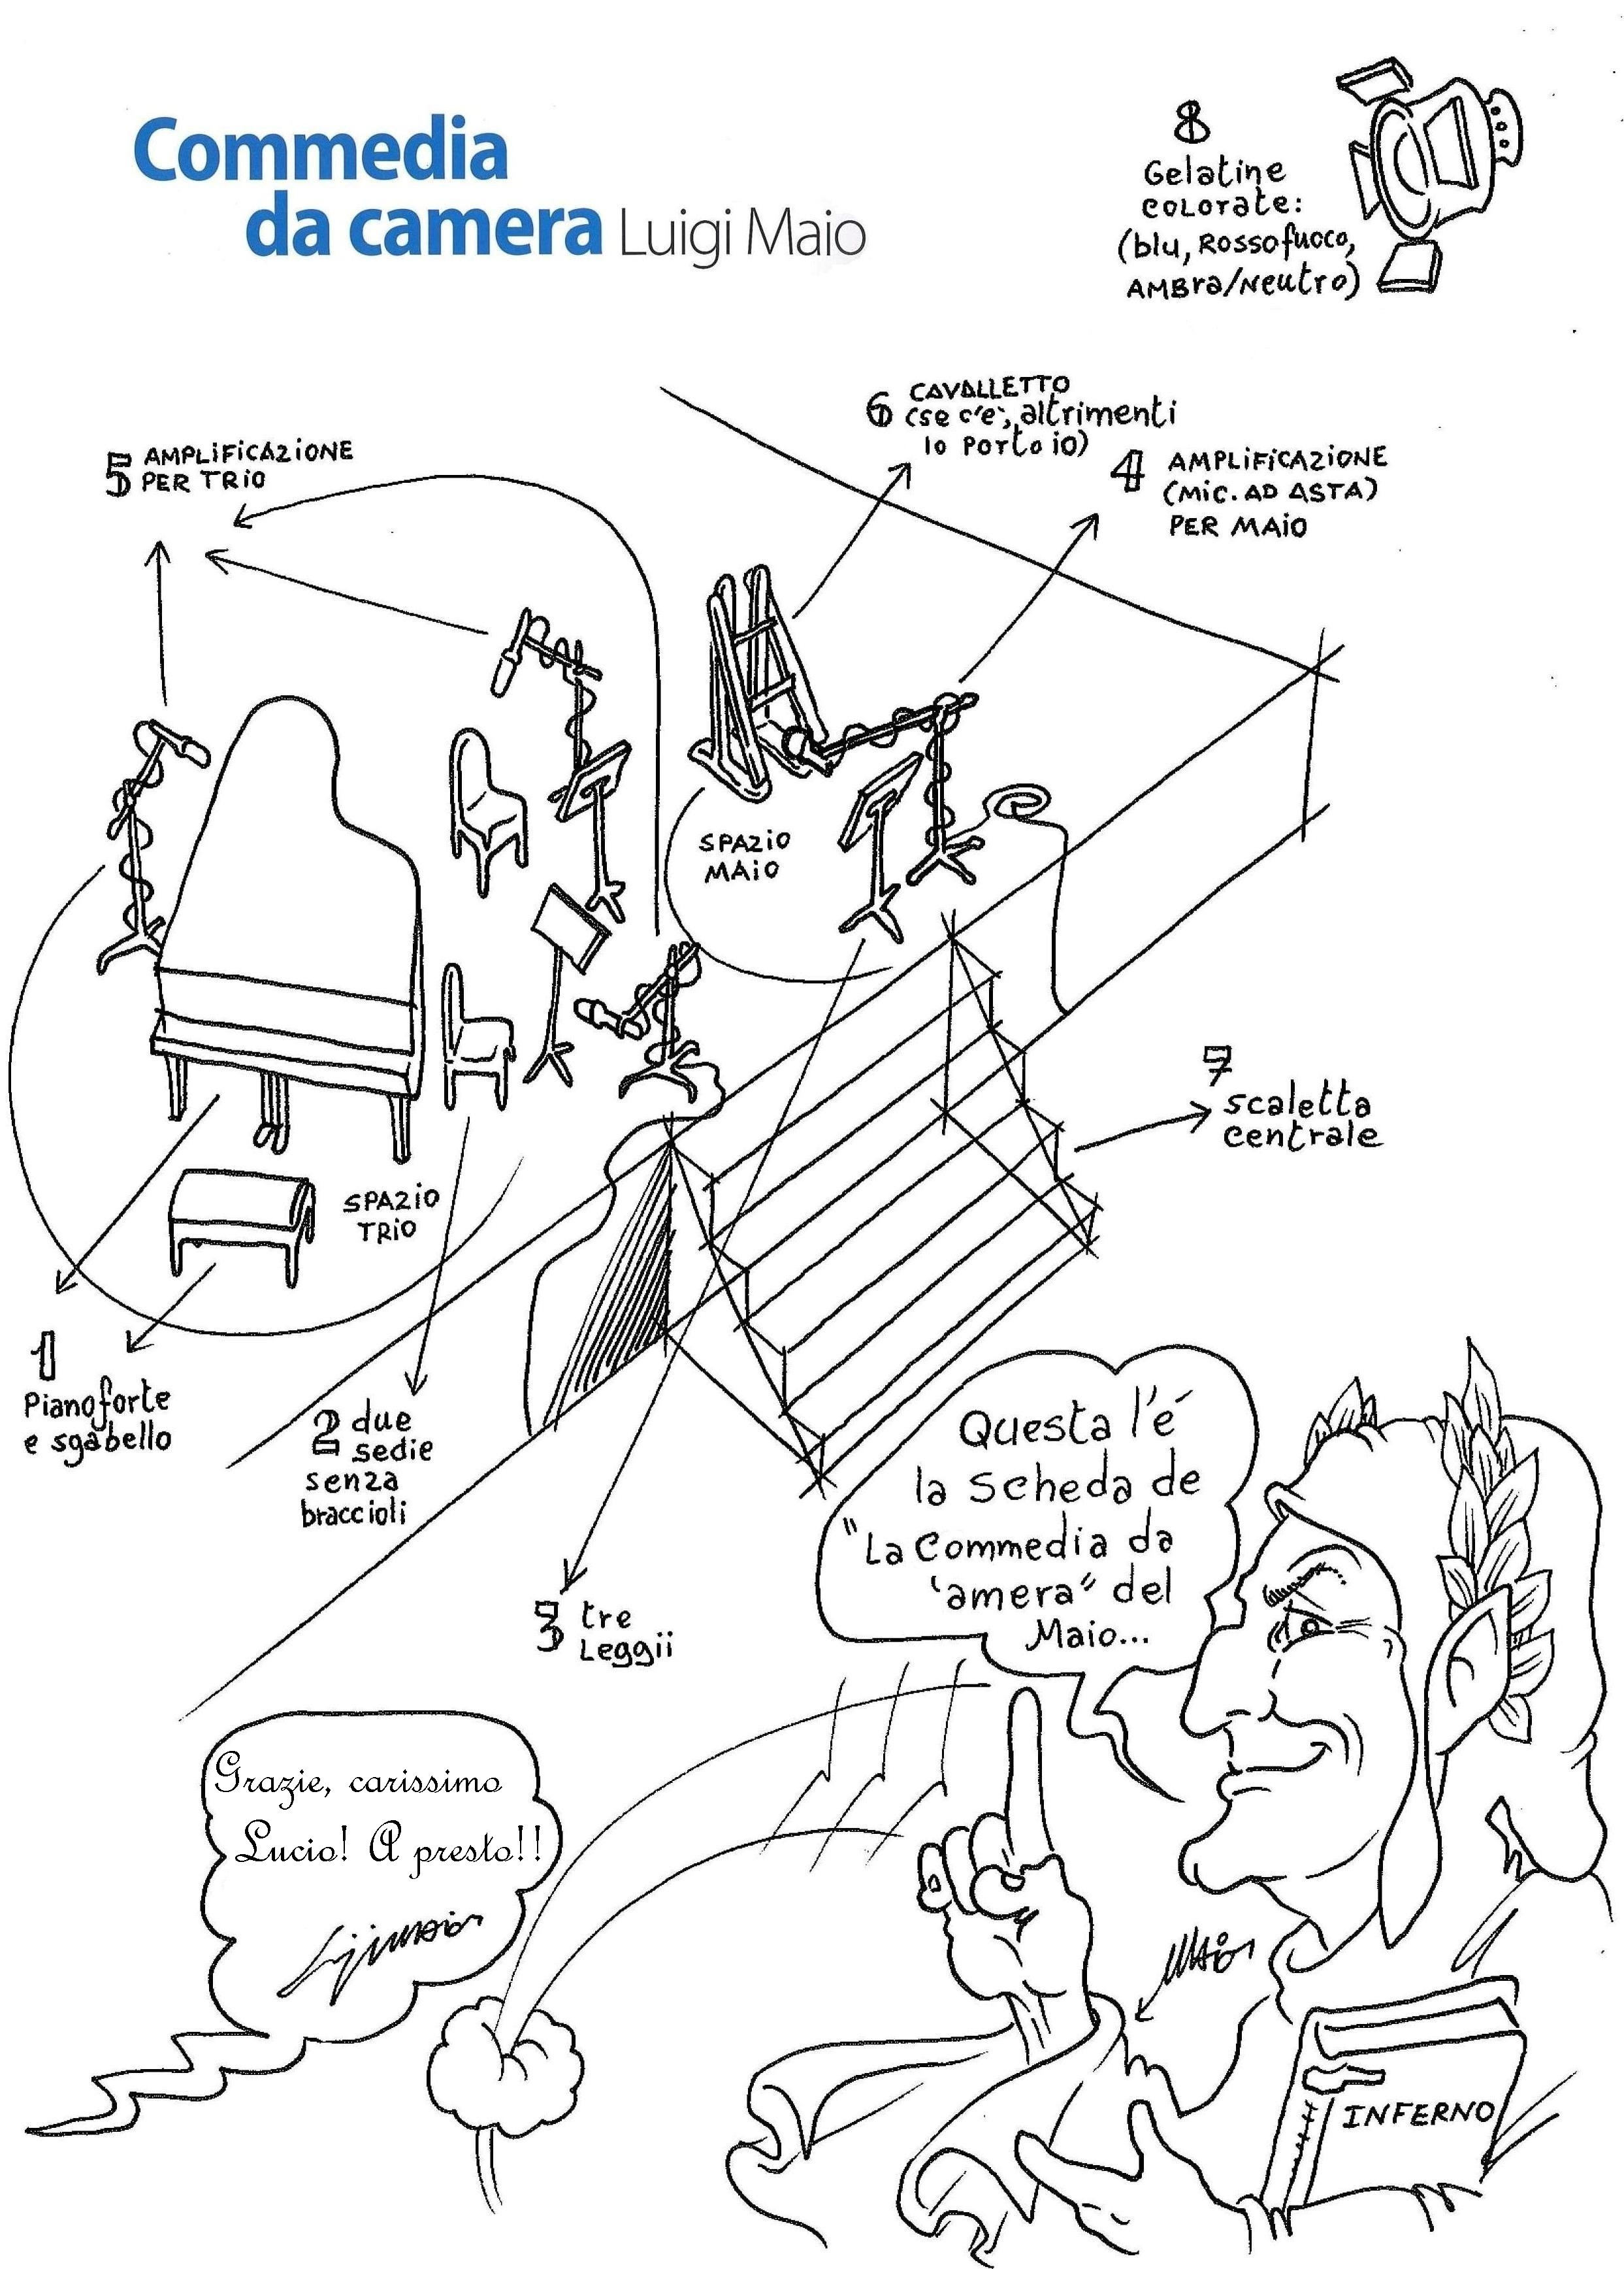 Commedia
da camera Luigi Maio
8
Gelatine
colorate:
(blu, Rossofuoco,
AMBra/Neutro)
6 CAVALLETTO
(se c'è, altrimenti
lo Porto io)
4 AMPLIFICAZIONE
(MIC. AD ASTA)
PER MAIO
5 AMPLIFICAZIONE
PER TRIO
SPAZIO
MAIO
7
scaletta
centrale
SPAZIO
TRIO
1
Pianoforte
e sgabello
2 due
sedie
senza
braccioli
3 tre
Leggii
Questa l'é
la scheda de
"La Commedia da
'amera" del
Maio...
Grazie, carissimo
Lucio! A presto!!
Luigi Maio
MAIO
INFERNO